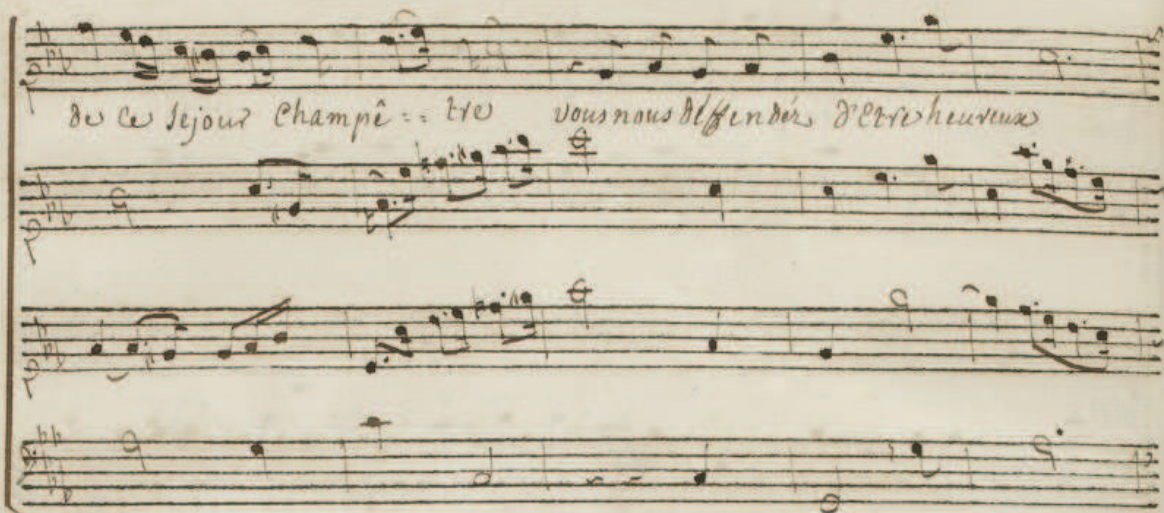 de ce sejour Champê :: tre vous nous déffendéz d'Etre heureux